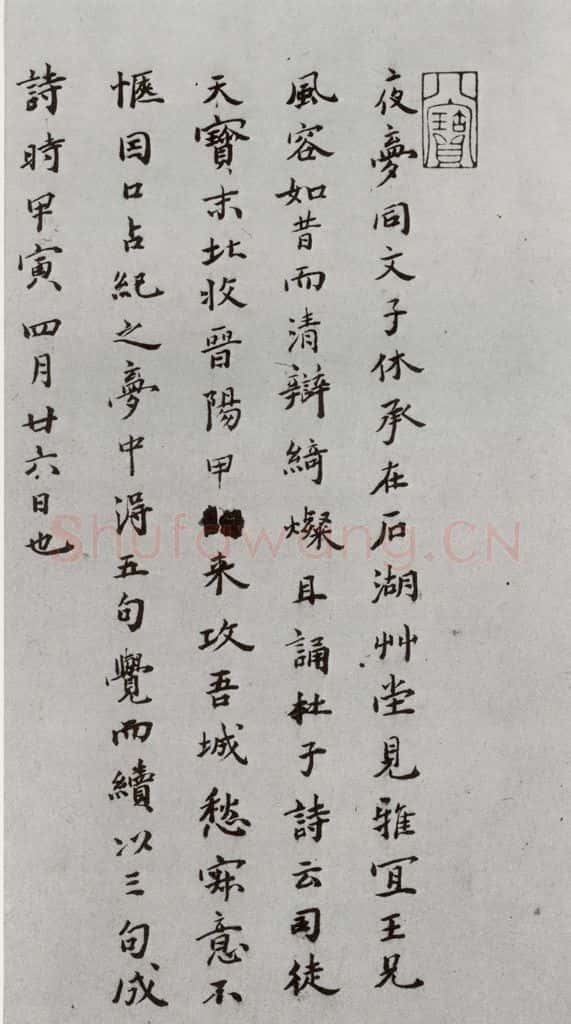 夜夢同文子休承在石湖艸堂見雅宜王兄
風容如昔而清辯綺燦且誦杜子詩云司徒
天寶末北收晉陽甲來攻吾城愁寐意不
愜因口占紀之夢中得五句覺而續以三句成
詩時甲寅四月廿六日也
八寶
Shufawang.CN